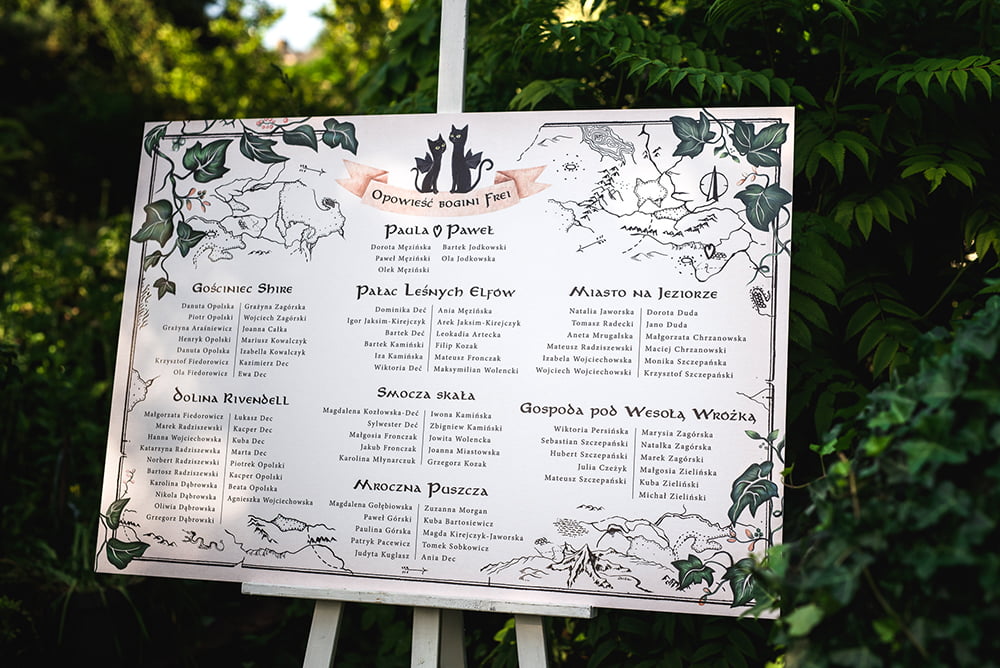 Opowieść bogini Frei
Paula Paweł
Dorota Męzińska Bartek Jodkowski
Paweł Męziński Ola Jodkowska
Olek Męziński
Gościniec Shire
Danuta Opolska Grażyna Zagórska
Piotr Opolski Wojciech Zagórski
Grażyna Araśniewicz Joanna Całka
Henryk Opolski Mariusz Kowalczyk
Danuta Opolska Izabella Kowalczyk
Krzysztof Fiedorowicz Kazimierz Dec
Ola Fiedorowicz Ewa Dec
Pałac Leśnych Elfów
Dominika Deć Ania Męzińska
Igor Jaksim-Kirejczyk Arek Jaksim-Kirejczyk
Bartek Deć Leokadia Artecka
Bartek Kamiński Filip Kozak
Iza Kamińska Mateusz Fronczak
Wiktoria Deć Maksymilian Wolencki
Miasto na Jeziorze
Natalia Jaworska Dorota Duda
Tomasz Radecki Jano Duda
Aneta Mrugalska Małgorzata Chrzanowska
Mateusz Radziszewski Maciej Chrzanowski
Izabela Wojciechowska Monika Szczepańska
Wojciech Wojciechowski Krzysztof Szczepański
Dolina Rivendell
Małgorzata Fiedorowicz Łukasz Dec
Marek Radziszewski Kacper Dec
Hanna Wojciechowska Kuba Dec
Katarzyna Radziszewska Marta Dec
Norbert Radziszewski Piotrek Opolski
Bartosz Radziszewski Kacper Opolski
Karolina Dąbrowska Beata Opolska
Nikola Dąbrowska Agnieszka Wojciechowska
Oliwia Dąbrowska
Grzegorz Dąbrowski
Smocza skała
Magdalena Kozłowska-Deć Iwona Kamińska
Sylwester Deć Zbigniew Kamiński
Małgosia Fronczak Jowita Wolencka
Jakub Fronczak Joanna Miastowska
Karolina Młynarczuk Grzegorz Kozak
Gospoda pod Wesołą Wróżką
Wiktoria Persińska Marysia Zagórska
Sebastian Szczepański Natalka Zagórska
Hubert Szczepański Marek Zagórski
Julia Czeżyk Małgosia Zielińska
Mateusz Szczepański Kuba Zieliński
Michał Zieliński
Mroczna Puszcza
Magdalena Gołębiowska Zuzanna Morgan
Paweł Górski Kuba Bartosiewicz
Paulina Górska Magda Kirejczyk-Jaworska
Patryk Pacewicz Tomek Sobkowicz
Judyta Kuglasz Ania Dec